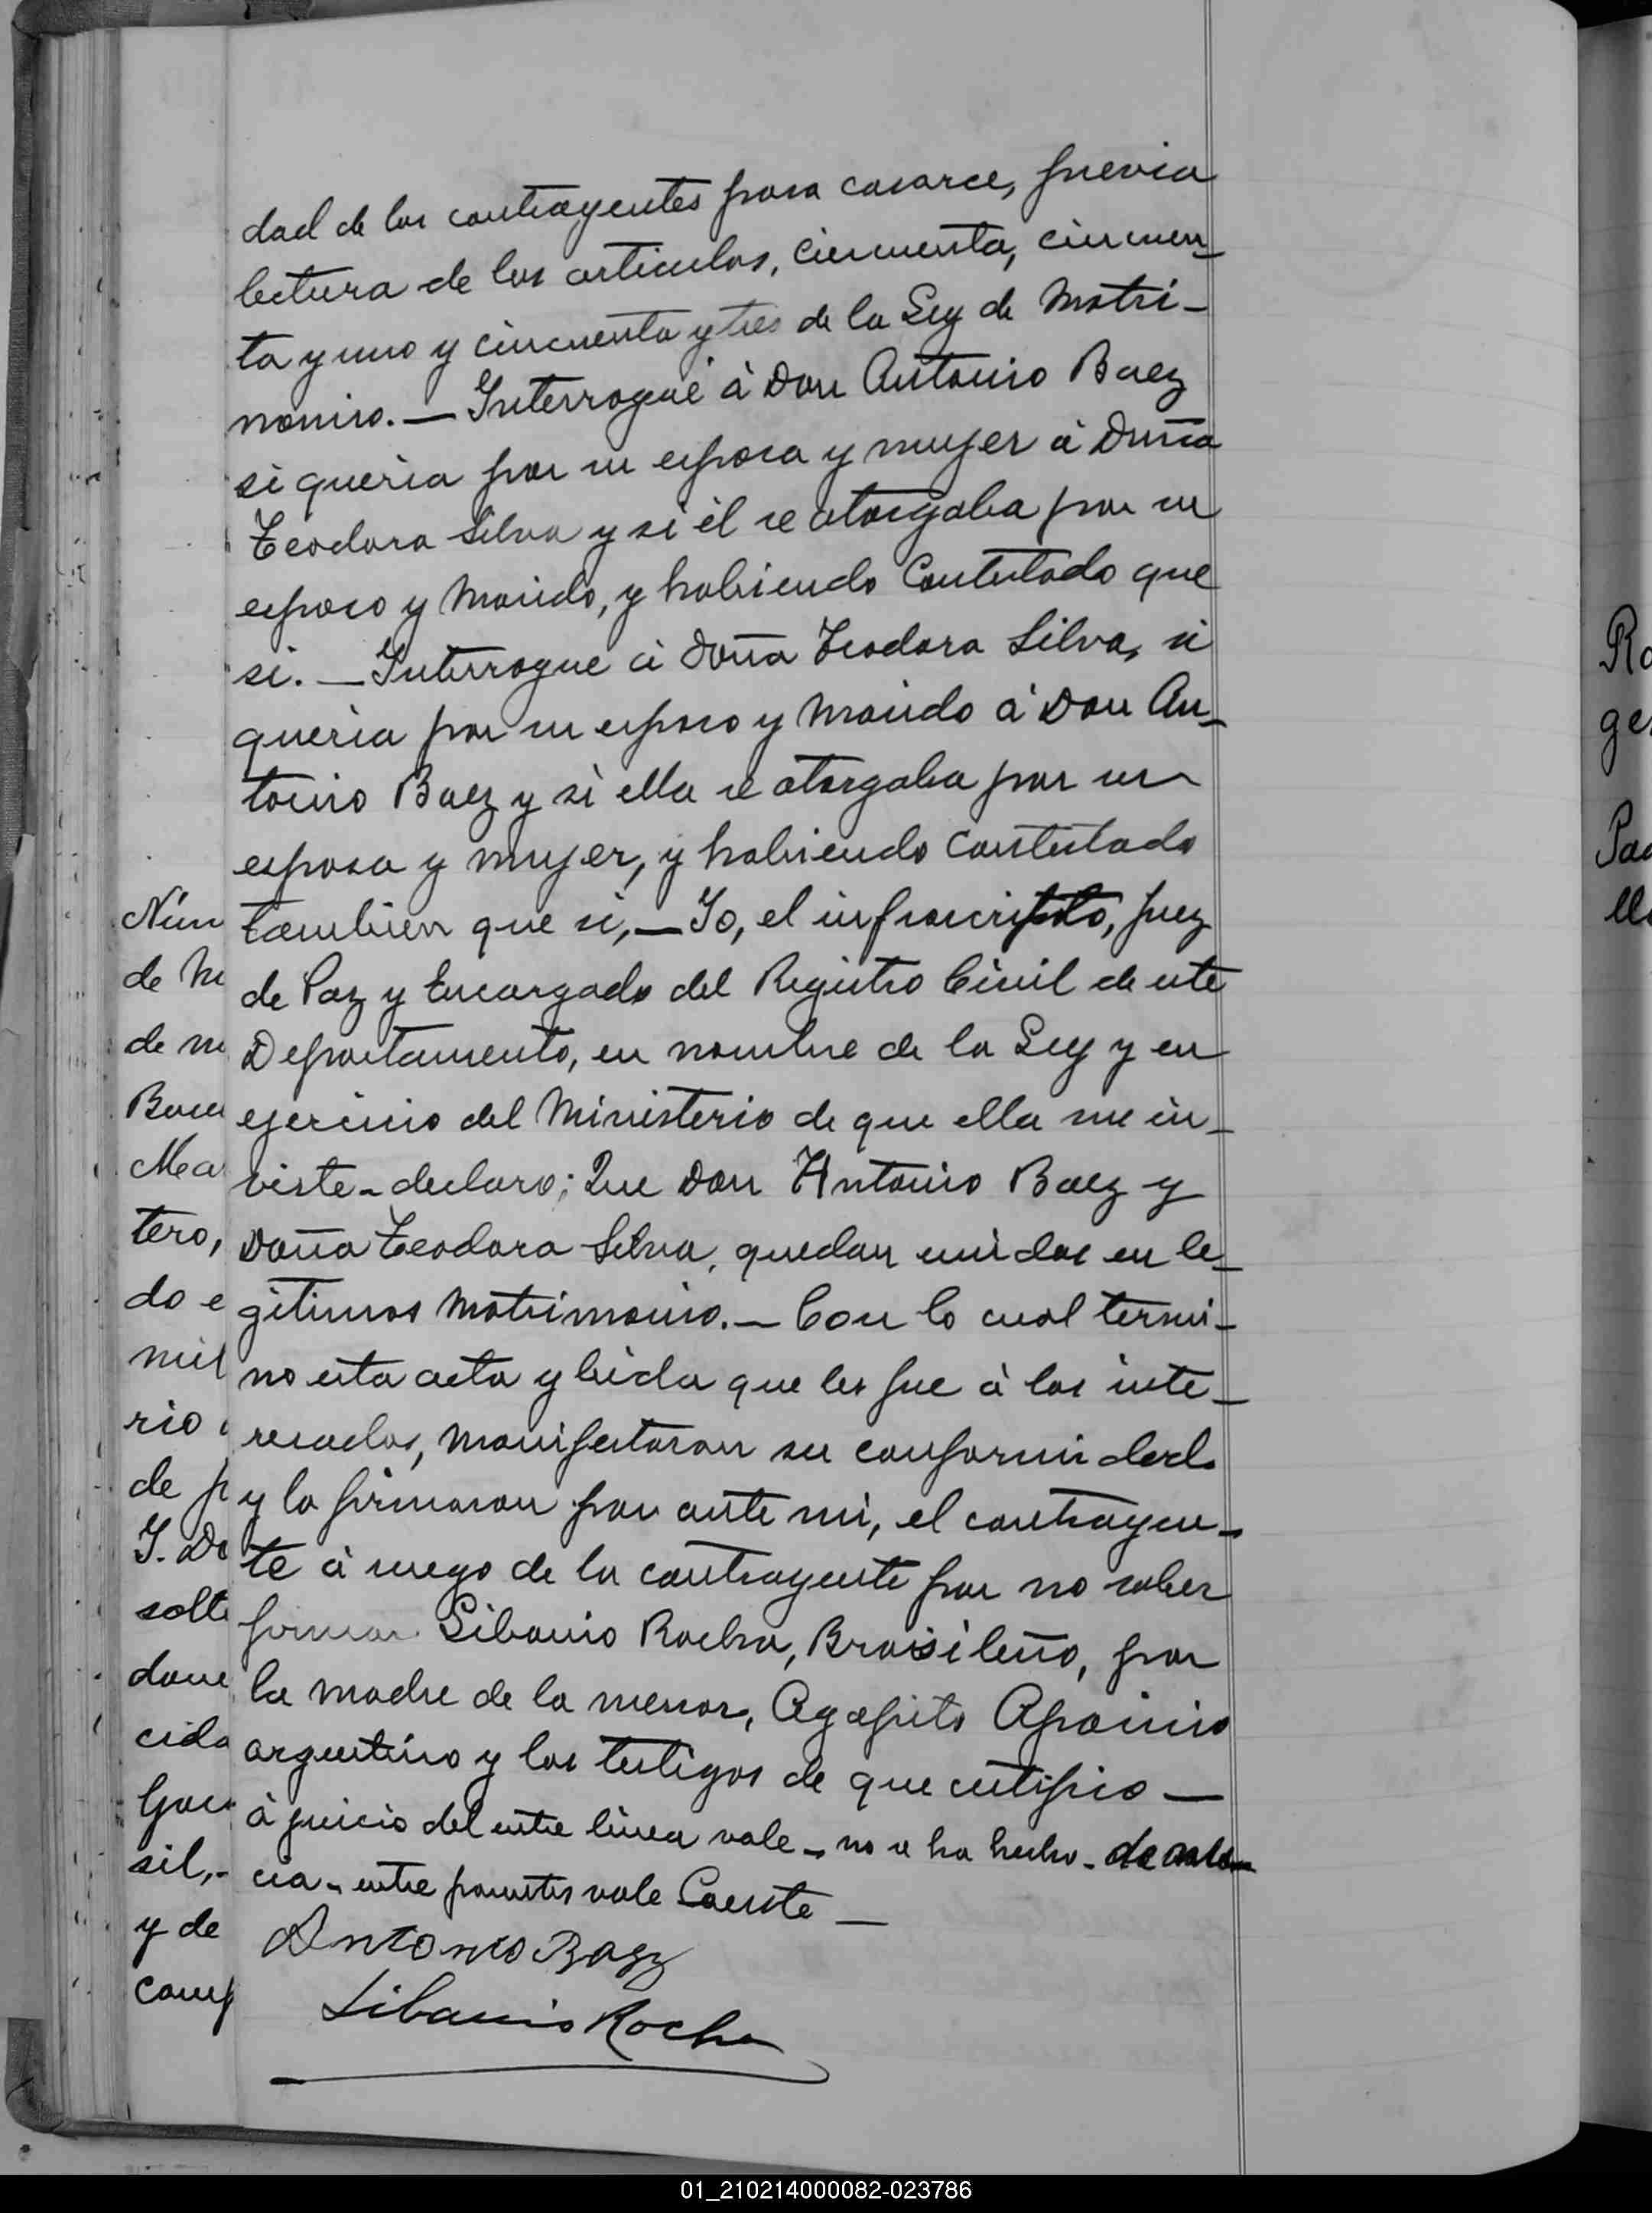 dad de los contrayentes para casarce, previa
lectura de los articulos, cincuenta, cincuen-
ta y uno y cincuenta y tres de la Ley de Matri-
monio. — Interrogué à Don Antonio Baez
si queria por su esposa y mujer à Doña
Teodora Silva y si él se otorgaba por su
esposo y marido, y habiendo contestado que
si. — Interrogue à Doña Teodora Silva, si
queria por su esposo y marido à Don An-
tonio Baez y si ella se otorgaba por su
esposa y mujer, y habiendo contestado
tambien que si, — Yo, el infrascripto, Juez
de Paz y Encargado del Registro Civil de este
Departamento, en nombre de la Ley y en
ejercicio del Ministerio de que ella me in-
viste - declaro; Que Don Antonio Baez y
Doña Teodora Silva, quedan unidos en le-
gitimos matrimonio. — Con lo cual termi-
no esta acta y leida que les fue à los inte-
resados, manifestaron su conformidad
y la firmaron por ante mi, el contrayen-
te à ruego de la contrayente por no saber
firmar Libanio Rocha, Brasileño, por
la madre de la menor, Agapito Aponino
argentino y los testigos de que certifico —
à juicio del entre linea vale - no se ha hecho - de
cia - entre parentes vale Conste —
Antonio Baez
Libanio Rocha
Núm
de M
de m
Mea
tero,
do e
mil
rio
de p
Y. Do
solte
cida
sil,-
y de
comp
Ro
ge
Pa
lle
01_210214000082-023786